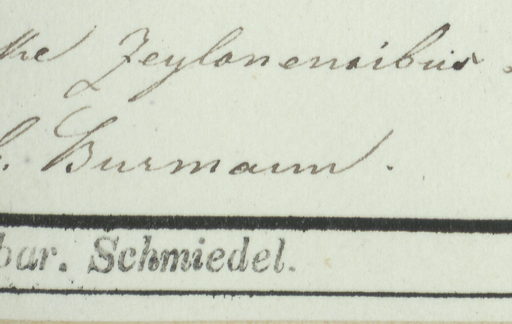 the Zeylonensibus
Burmann.
bar. Schmiedel.